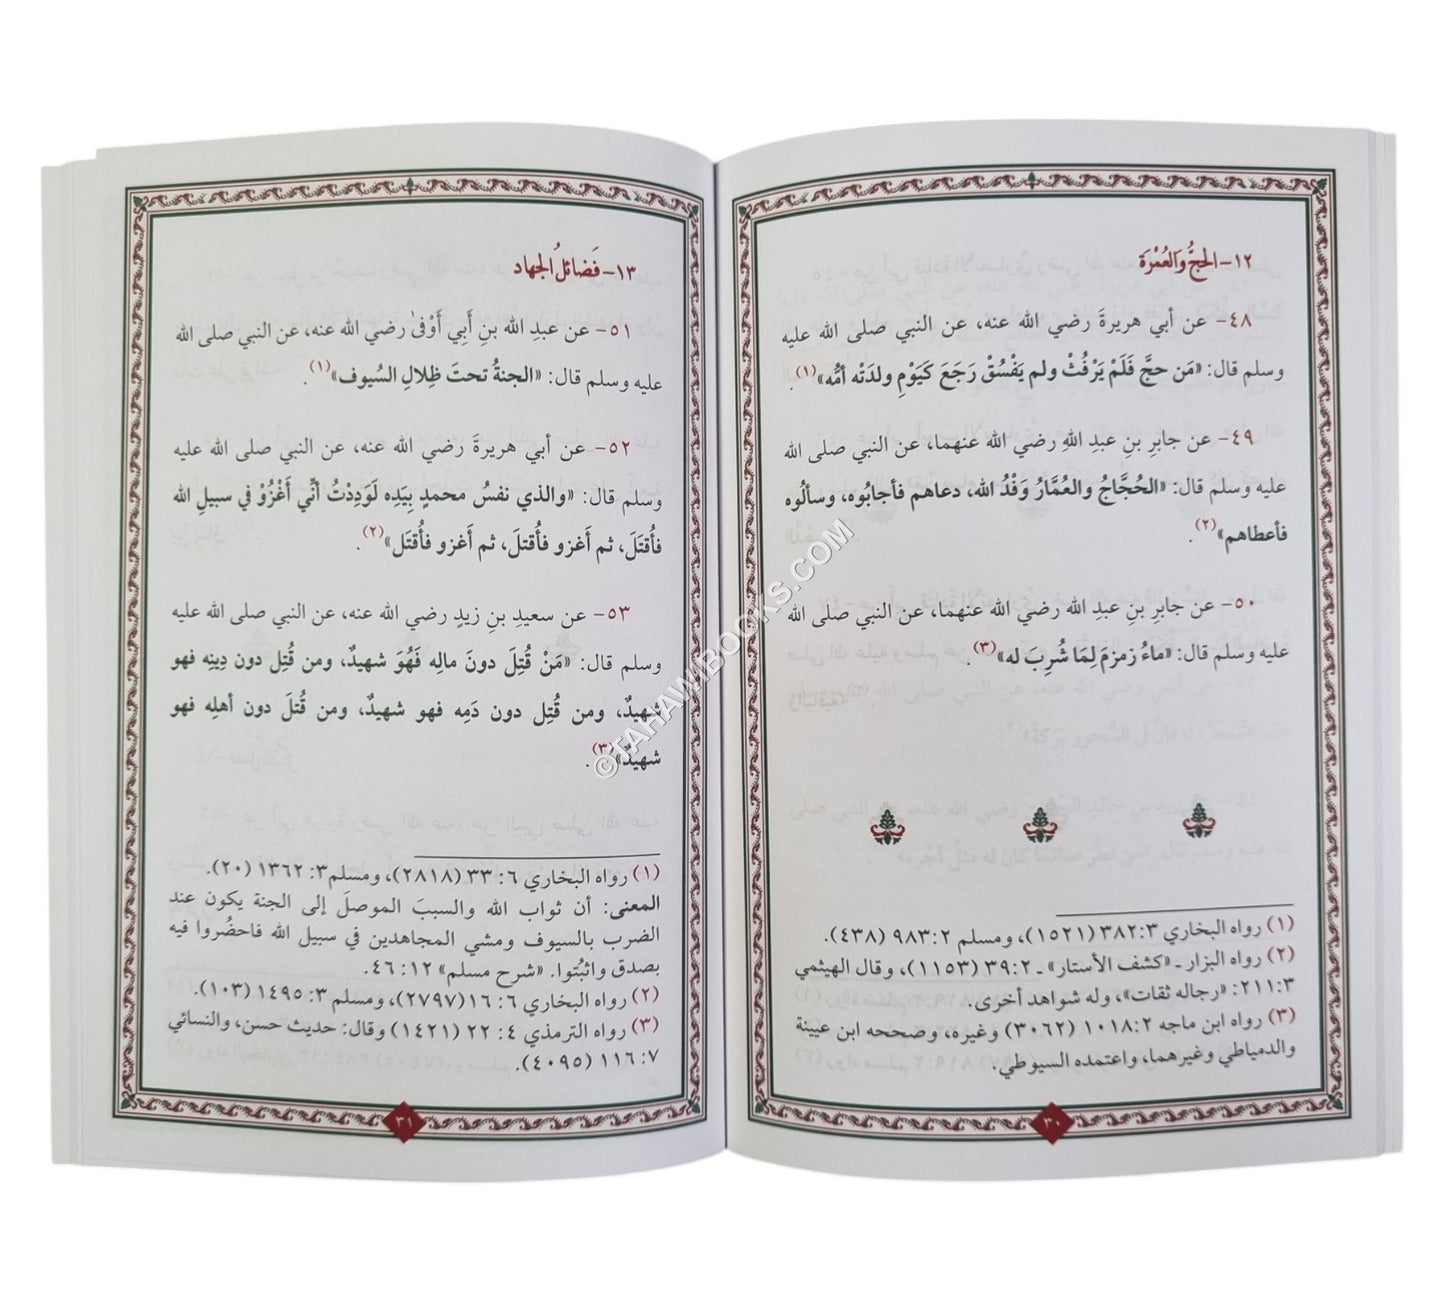 ١٢- الحجُّ وَالعُمْرَة
٤٨- عن أبي هريرةَ رضي الله عنه، عن النبي صلى الله عليه
وسلم قال: «مَن حجَّ فَلَمْ يَرْفُثْ ولم يَفْسُقْ رَجَعَ كَيَوْمِ ولدَتْه أمُّه»(١).
٤٩- عن جابرِ بنِ عبدِ اللهِ رضي الله عنهما، عن النبي صلى الله
عليه وسلم قال: «الحُجَّاجُ والعُمَّارُ وَفْدُ الله، دعاهم فأجابُوه، وسألُوه
فأعطاهم»(٢).
٥٠- عن جابرِ بنِ عبدِ الله رضي الله عنهما، عن النبي صلى الله
عليه وسلم قال: «ماءُ زمزمَ لِمَا شُرِبَ له»(٣).
(١) رواه البخاري ٣٨٢:٣ (١٥٢١)، ومسلم ٩٨٣:٢ (٤٣٨).
(٢) رواه البزار ـ «كشف الأستار» ـ ٣٩:٢ (١١٥٣)، وقال الهيثمي
٢١١:٣: «رجاله ثقات»، وله شواهد أخرى.
(٣) رواه ابن ماجه ١٠١٨:٢ (٣٠٦٢) وغيره، وصححه ابن عيينة
والدمياطي وغيرهما، واعتمده السيوطي.
٣٠
١٣- فَضائلُ الجهاد
٥١- عن عبدِ الله بنِ أَبِي أَوْفىٰ رضي الله عنه، عن النبي صلى الله
عليه وسلم قال: «الجنةُ تحتَ ظِلالِ السُيوف»(١).
٥٢- عن أبي هريرةَ رضي الله عنه، عن النبي صلى الله عليه
وسلم قال: «والذي نفسُ محمدٍ بِيَده لَوَدِدْتُ أنِّي أَغْزُوْ في سبيلِ الله
فأُقتَلَ، ثم أَغزو فأُقتلَ، ثم أَغزو فأُقتَل»(٢).
٥٣- عن سعيدِ بنِ زيدٍ رضي الله عنه، عن النبي صلى الله عليه
وسلم قال: «مَنْ قُتِلَ دونَ مالِه فَهُوَ شهيدٌ، ومن قُتِل دون دِينِه فهو
شهيدٌ، ومن قُتِل دون دَمِه فهو شهيدٌ، ومن قُتلَ دون أهلِه فهو
شهيدٌ»(٣).
(١) رواه البخاري ٦: ٣٣ (٢٨١٨)، ومسلم٣: ١٣٦٢ (٢٠).
المعنى: أن ثواب الله والسببَ الموصلَ إلى الجنة يكون عند
الضرب بالسيوف ومشي المجاهدين في سبيل الله فاحضُروا فيه
بصدق واثبُتوا. «شرح مسلم» ١٢: ٤٦.
(٢) رواه البخاري ٦: ١٦(٢٧٩٧)، ومسلم ٣: ١٤٩٥ (١٠٣).
(٣) رواه الترمذي ٤: ٢٢ (١٤٢١) وقال: حديث حسن، والنسائي
٧: ١١٦ (٤٠٩٥).
٣١
©TAHAWIBOOKS.COM